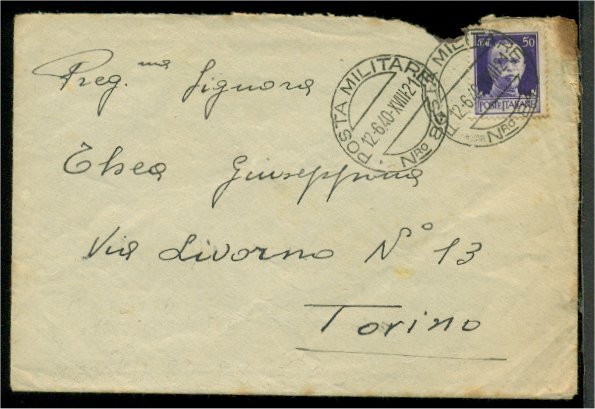 Preg.ma Signora
Thea Giuseppina
Via Livorno N° 13
Torino
POSTA MILITARE
12-6.40-XVIII-21
NRO 86
POSTA MILITARE
12-6.40
NRO
50
POSTE ITALIANE